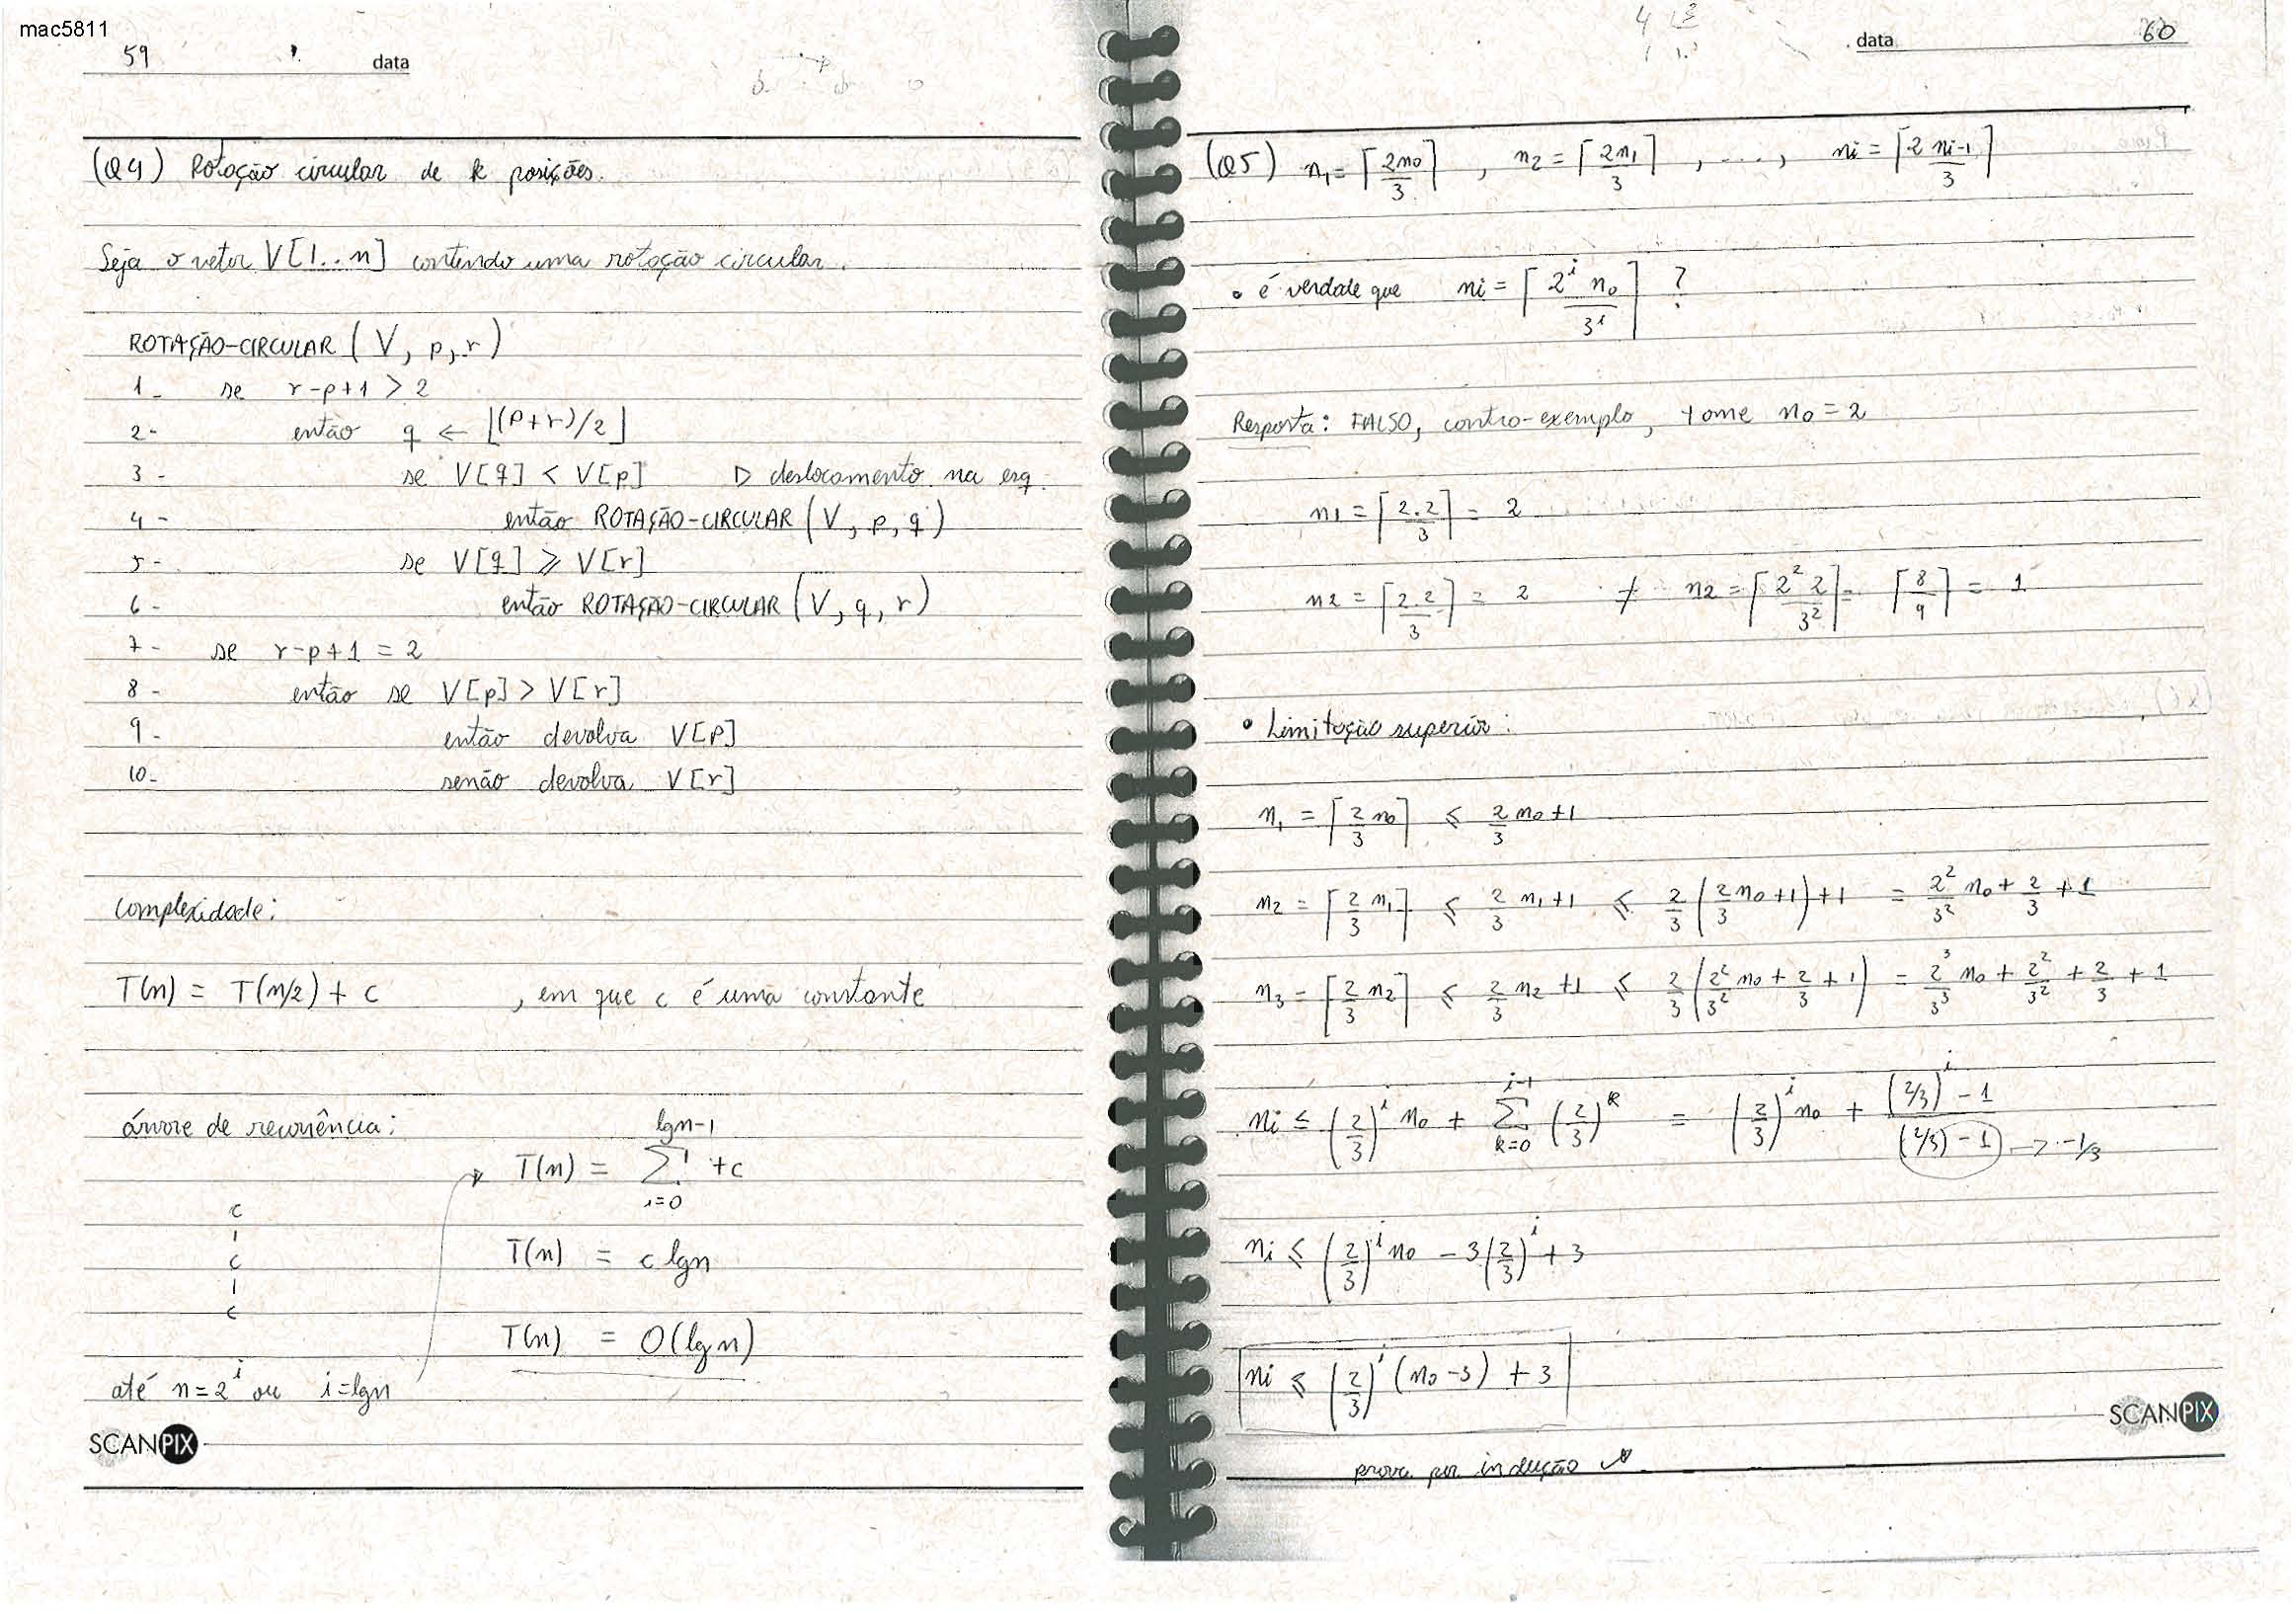 mac5811
59 data
(Q4) Rotação circular de k posições.
Seja o vetor V[1..n] contendo uma rotação circular.
ROTAÇÃO-CIRCULAR (V, p, r)
1- se r-p+1 > 2
2- então q ← ⌊(p+r)/2⌋
3- se V[q] < V[p] ▷ deslocamento na esq.
4- então ROTAÇÃO-CIRCULAR (V, p, q)
5- se V[q] ⩾ V[r]
6- então ROTAÇÃO-CIRCULAR (V, q, r)
7- se r-p+1 = 2
8- então se V[p] > V[r]
9- então devolva V[p]
10- senão devolva V[r]
Complexidade:
T(n) = T(n/2) + c , em que c é uma constante
árvore de recorrência:
T(n) = ∑_{i=0}^{lgn-1} +c
c
T(n) = c lgn
c
c
T(n) = O(lgn)
até n=2^i ou i=lgn
SCANPIX
data 60
(Q5) n₁ = ⌈2n₀/3⌉ , n₂ = ⌈2n₁/3⌉ , ...., nᵢ = ⌈2nᵢ₋₁/3⌉
• é verdade que nᵢ = ⌈2^i n₀/3^i⌉ ?
Resposta: FALSO, contra-exemplo, tome n₀ = 2
n₁ = ⌈2.2/3⌉ = 2
n₂ = ⌈2.2/3⌉ = 2 ≠ n₂ = ⌈2² 2/3²⌉ = ⌈8/9⌉ = 1
• Limitação superior:
n₁ = ⌈2/3 n₀⌉ ⩽ 2/3 n₀+1
n₂ = ⌈2/3 n₁⌉ ⩽ 2/3 n₁+1 ⩽ 2/3 (2/3 n₀+1)+1 = 2²/3² n₀ + 2/3 + 1
n₃ = ⌈2/3 n₂⌉ ⩽ 2/3 n₂+1 ⩽ 2/3 (2²/3² n₀ + 2/3 + 1) = 2³/3³ n₀ + 2²/3² + 2/3 + 1
nᵢ ≤ (2/3)^i n₀ + ∑_{k=0}^{i-1} (2/3)^k = (2/3)^i n₀ + ((2/3)^i - 1)/((2/3) - 1) → -1/3
nᵢ ⩽ (2/3)^i n₀ - 3(2/3)^i + 3
nᵢ ⩽ (2/3)^i (n₀-3) + 3
SCANPIX
prova por indução